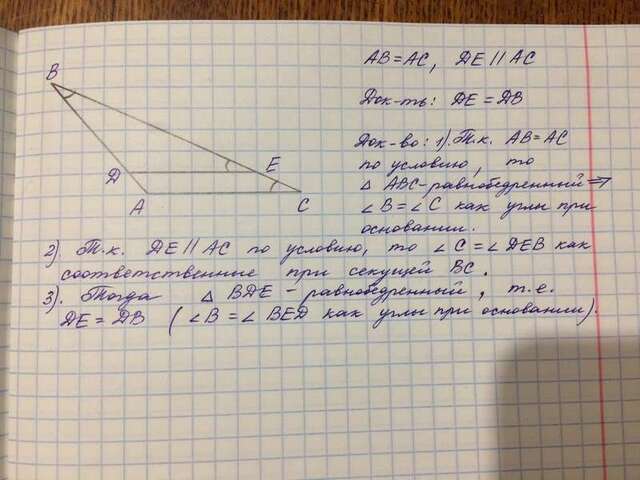 AB=AC, DE || AC
Док-ть: DE = DB
Док-во: 1). Т.к. AB = AC
по условию, то
△ ABC-равнобедренный ⇒
∠B=∠C как углы при
основании.
B
D
A
E
C
2). Т.к. DE || AC по условию, то ∠C=∠DEB как
соответственные при секущей BC.
3). Тогда △ BDE - равнобедренный, т.е.
DE = DB (∠B = ∠BED как углы при основании).